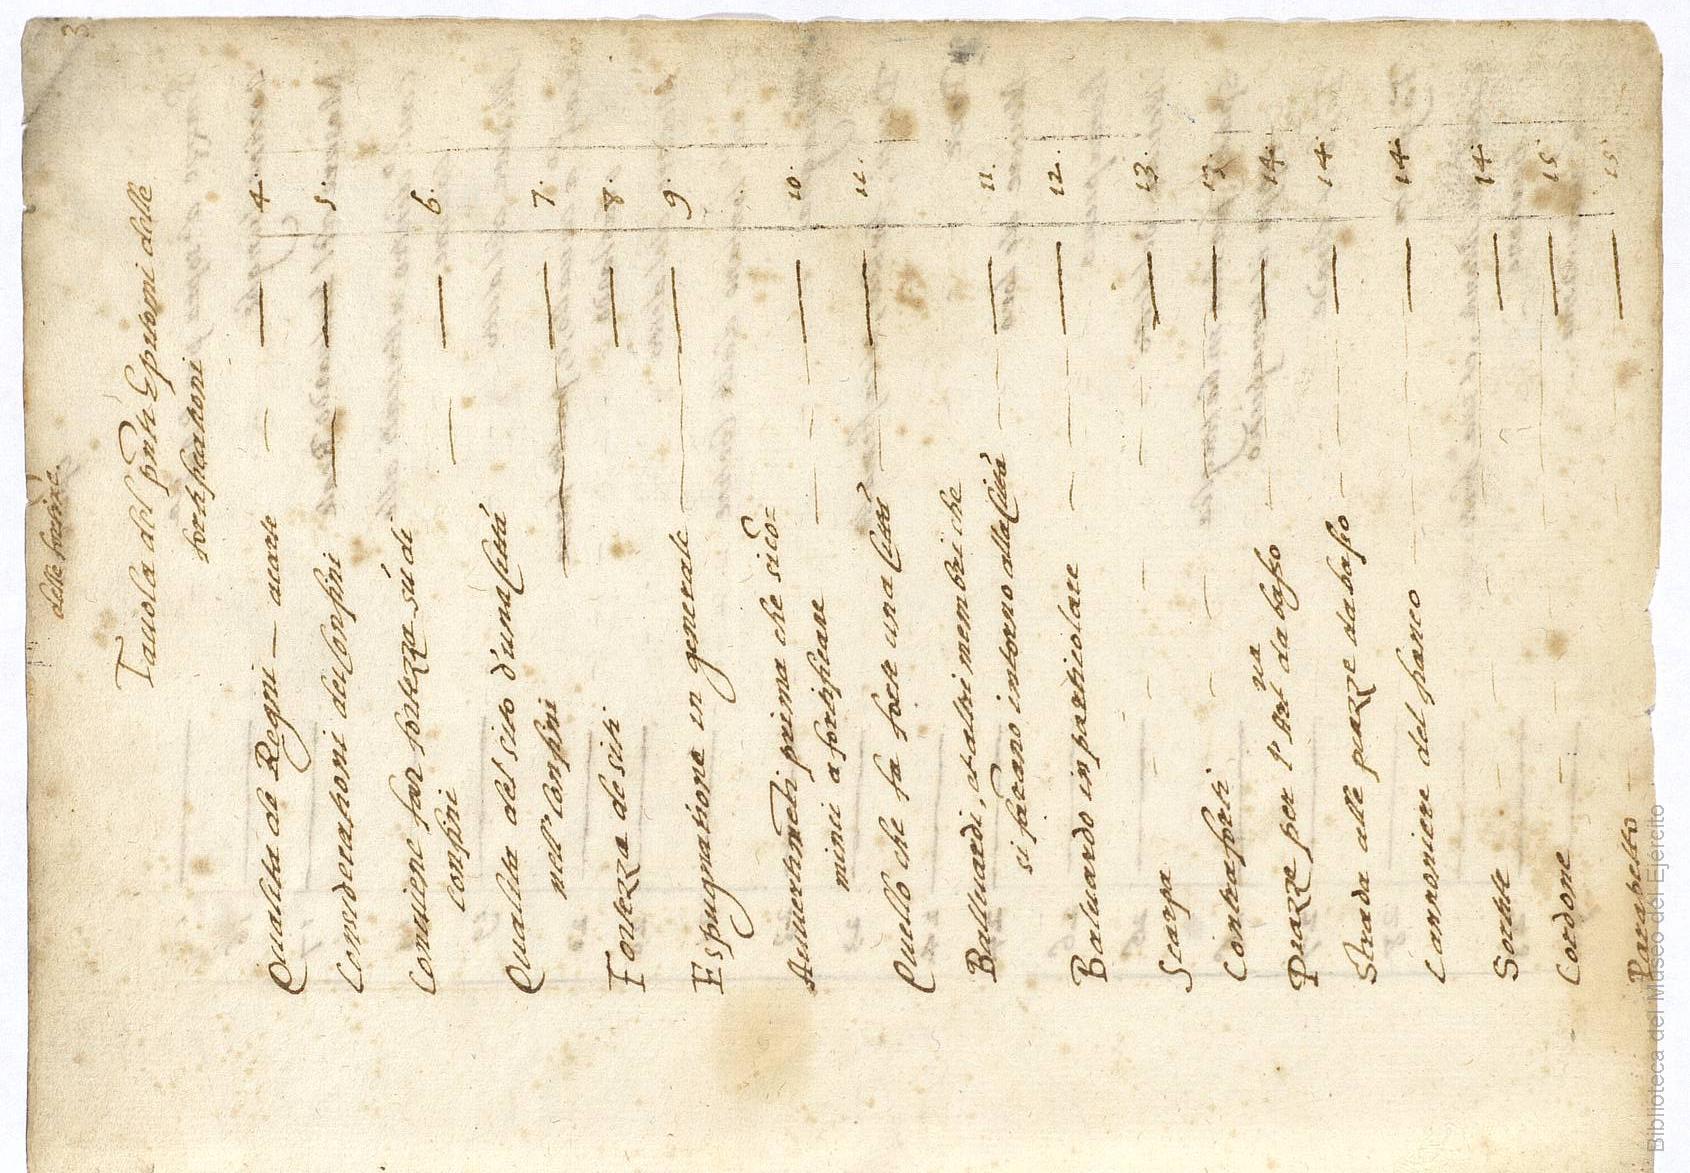 3
delle fortezze
Tavola del pn̄te Epitomi delle
fortificationi
Qualita de Regni — a carte — 4.
Considerationi del Confini — 5.
Conviene far fortezza sú di — 6.
Confini
Qualita del sito d'una Cittá — 7.
nell'Confini
Fortezza de siti — 8
Espugnatione in generale — 9
Avvertimēti prima che si co= — 10.
minci a fortificare
Quello che fa forte una Cittá — 11.
Balluardi, et altri membri che
si facciano intorno alla Cittá — 11.
Baluardo in particolare — 12.
Scarpa — 13.
Contrafforti — 13.
Piazze per l' da basso — 14.
Strada alle piazze da basso — 14.
Cannoniere del fianco — 14.
Sortite — 14.
Cordone — 15.
Parapetto — 15.
Biblioteca del Museo del Ejército